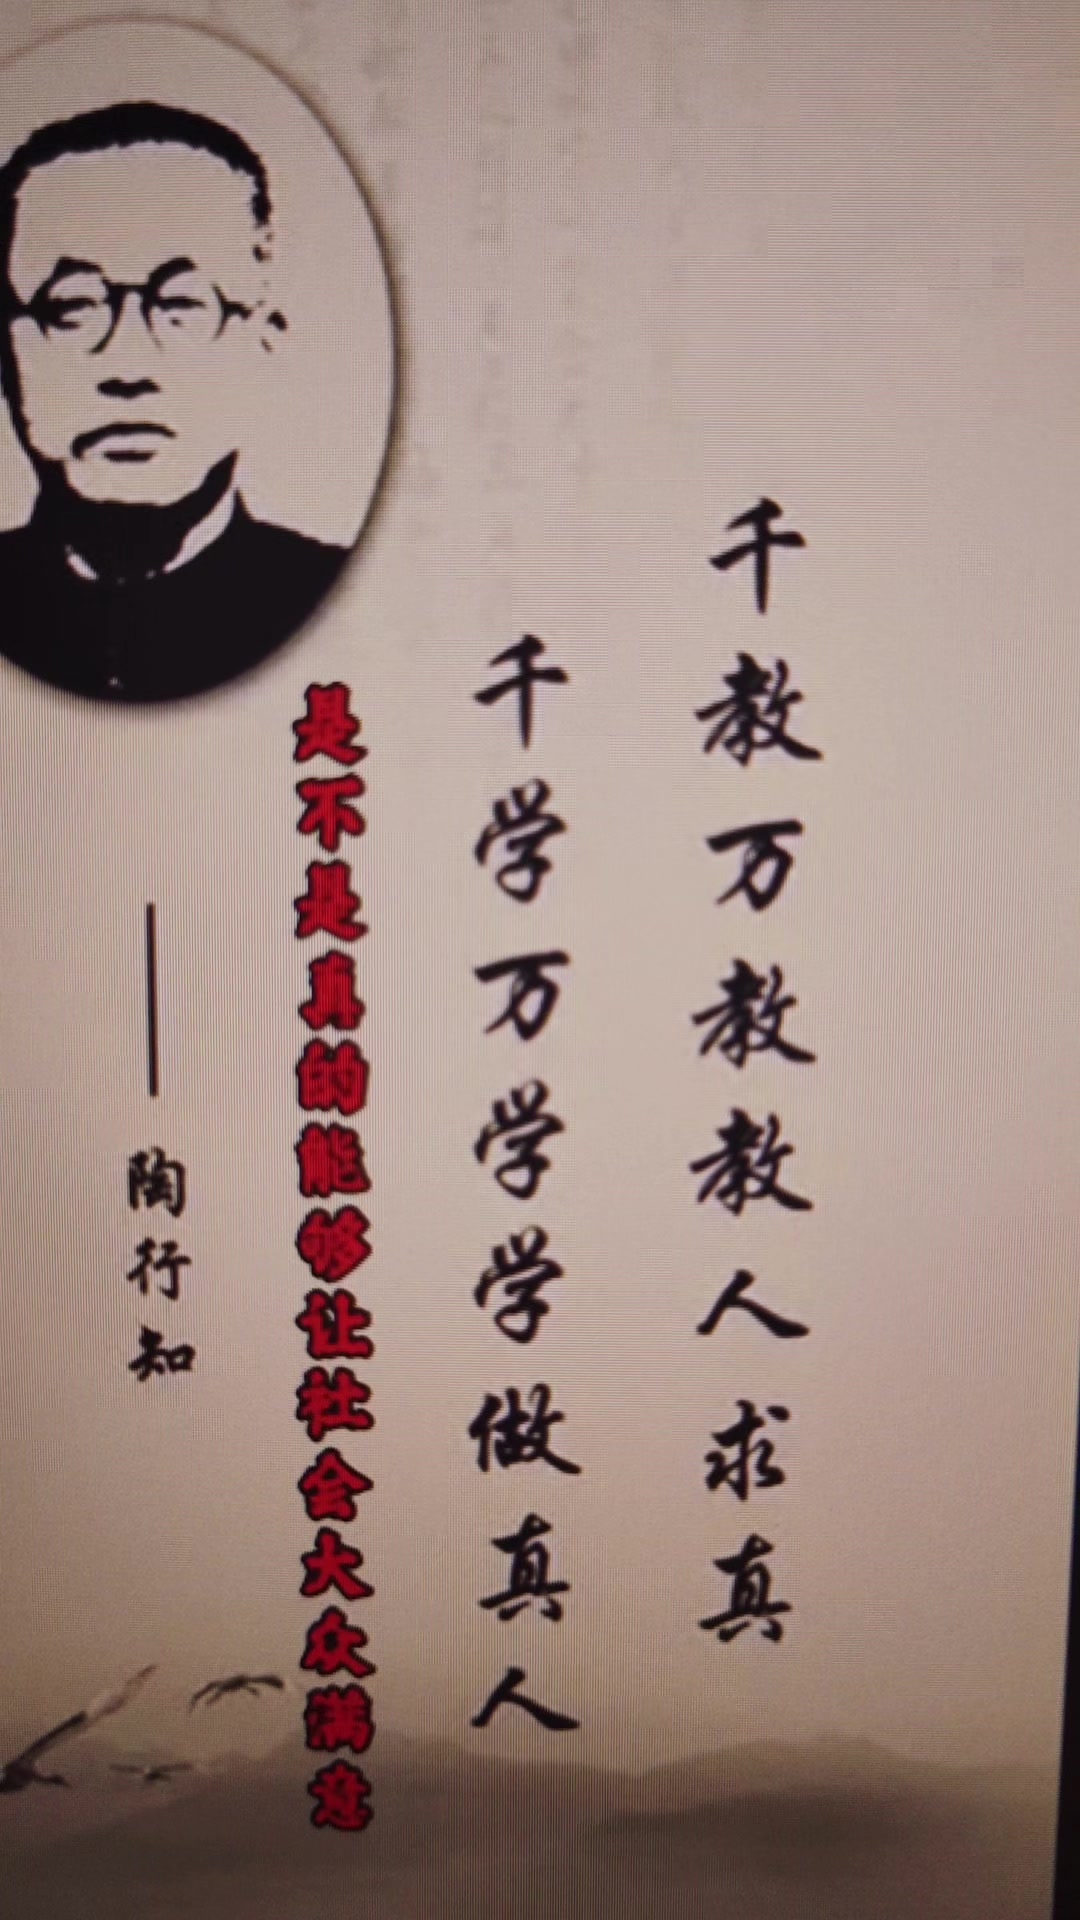 千教万教教人求真
千学万学学做真人
是不是真的能够让社会大众满意
——陶行知